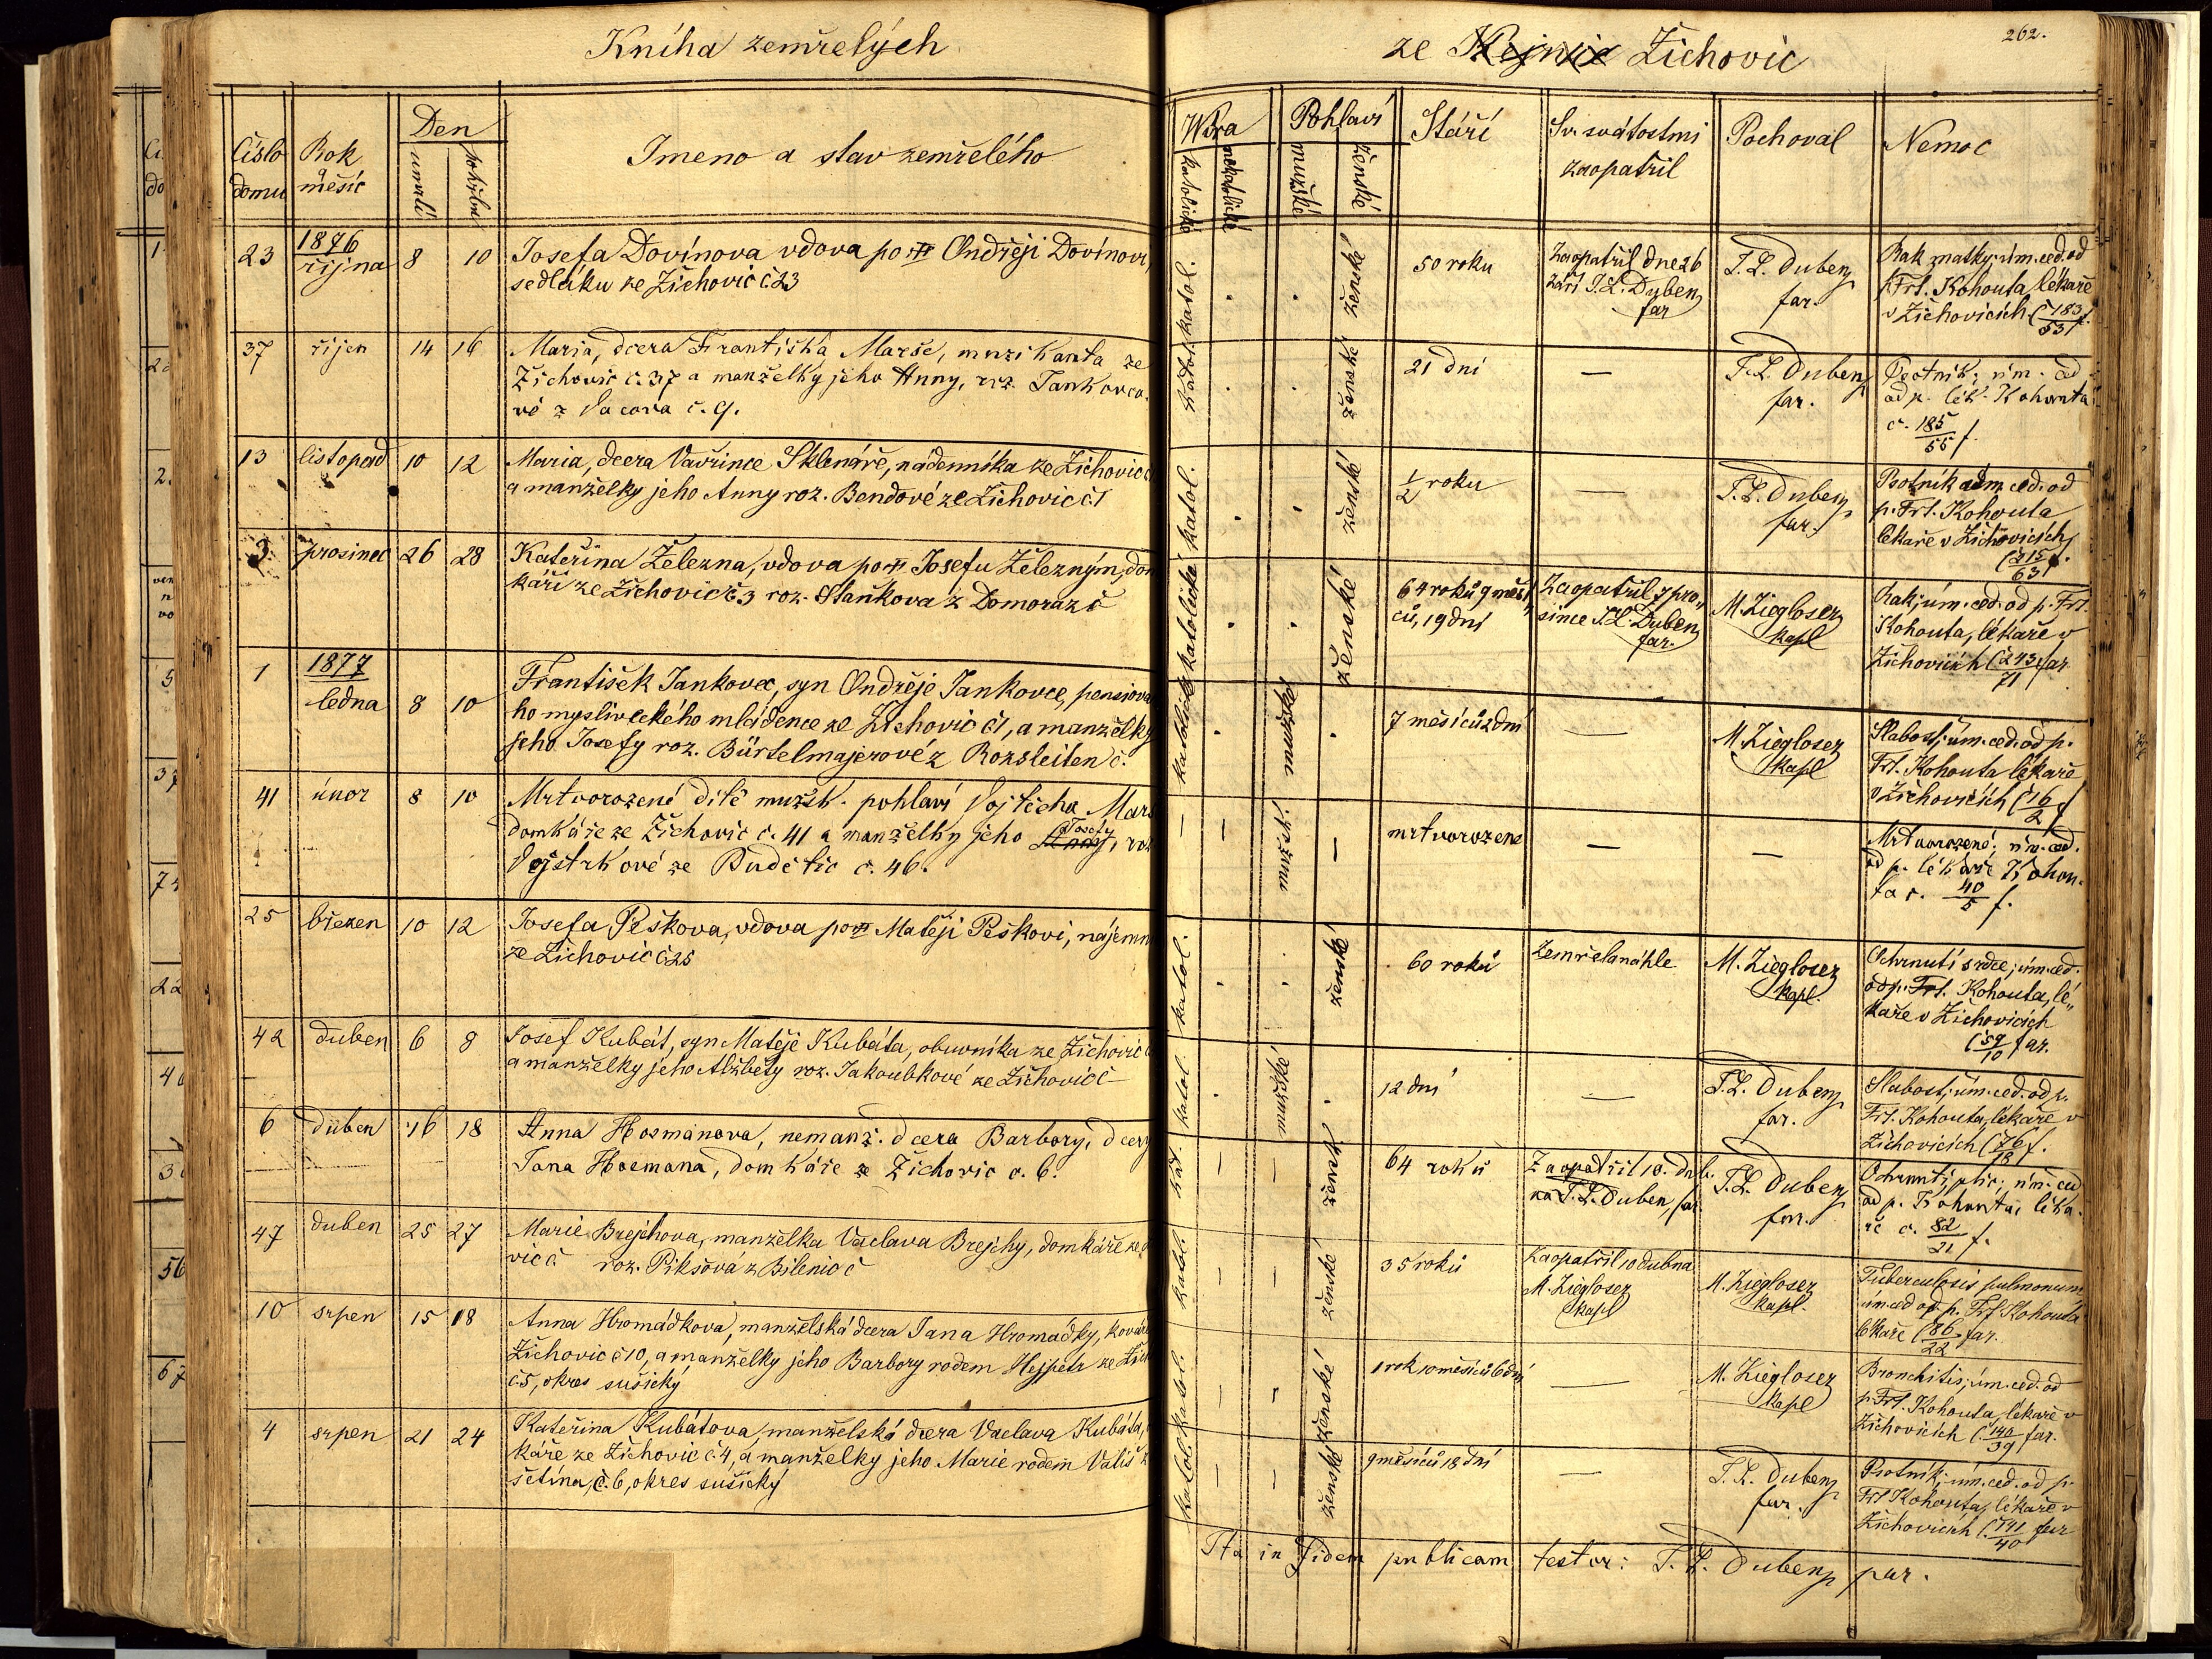 Kniha zemřelých
ze Kejnic Žichovic
262.
číslo domu
Rok a měsíc
Den
úmrtí
pohřbu
Jmeno a stav zemřelého
Wíra
katolické
nekatolické
Pohlaví
mužské
ženské
Stáří
Sv. svátostmi zaopatřil
Pochoval
Nemoc
23 1876 října 8 10
Josefa Dovínova vdova po Ondřeji Dovínovi,
sedláku ze Žichovic č 23
katol. ženské 50 roku
Zaopatřil dne 26
září T. L. Duben
far
T. L. Duben
far.
Rak matky; úm. ced. od
p. Frt. Kohouta, lékaře
v Žichovicích (č 183/53 f.
37 říjen 14 16
Maria, dcera Františka Mareše, muzikanta ze
Žichovic č. 37 a manželky jeho Anny, roz. Jankovco-
vé z Vacova č. 9.
katol. ženské 21 dní —
T. L. Duben
far.
Psotník; úm. ced
od p. lék. Kohouta
č. 185/55 f.
13 listopad 10 12
Maria, dcera Vavřince Sklenáře, nádenníka ze Žichovic č
a manželky jeho Anny roz. Bendové ze Žichovic č. 1
katol. ženské 1/2 roku —
T. L. Duben
far.
Psotník úm. ced. od
p. Frt. Kohouta
lékaře v Žichovicích
(č 215/63 f.
3 prosinec 26 28
Kateřina Železna, vdova po Josefu Železným, dom
káři ze Žichovic č. 3 roz. Staňkova z Domoraz č
katolické ženské 64 roků 9 měsí
ců, 19 dní
Zaopatřil 7 pro„
since T. L. Duben
far.
M. Ziegloser
kapl
Rak; úm. ced. od p. Frt.
Kohouta, lékaře v
Žichovicích (č 243/71 far.
1 1877 ledna 8 10
František Jankovec, syn Ondřeje Jankovce, pensiova
ho mysliveckého mládence ze Žichovic č 1, a manželky
jeho Josefy roz. Bürtelmajerové z Rozsleiten č.
katolické mužské 7 měsíců 2 dní —
M. Ziegloser
kapl
Slabost; úm. ced. od p.
Frt. Kohouta lékaře
v Žichovicích (č 16/2 f
41 únor 8 10
Mrtvorozené dítě mužsk. pohlaví Vojtěcha Mare
domkáře ze Žichovic č. 41 a manželky jeho Anny, Josefy roz
Vojstrkové ze Budětic č. 46.
— — mužské. — mrtvorozene — —
Mrtvorozené; úm. ced.
od p. lékaře Kohou-
ta č. 40/5 f.
25 březen 10 12
Josefa Peškova, vdova po Matěji Peškovi, nájemn
ze Žichovic č 25
katol. ženské 60 roků
Zemřela náhle
M. Ziegloser
kapl.
Ochrnutí srdce; úm. ced.
od p. Frt. Kohouta, lé„
kaře v Žichovicích
(č 59/10 far.
42 duben 6 8
Josef Kubát, syn Matěje Kubáta, obuvníka ze Žichovic č
a manželky jeho Alžběty roz. Jakoubkové ze Žichovic č —
katol. mužské 12 dní —
T. L. Duben
far.
Slabost; úm. ced. od p.
Frt. Kohouta, lékaře v
Žichovicích (č 76/18 f.
6 duben 16 18
Anna Hosmanova, nemanž. dcera Barbory, dcery
Jana Hosmana, domkáře ze Žichovic č. 6.
kat. — — ženské 64 roků
Zaopatřil 10. dub.
na T. L. Duben, far.
T. L. Duben
far.
Ochrnutí plic; úm. ced
od p. Kohouta, léka-
ře č. 82/21 f.
47 duben 25 27
Marie Brejchova, manželka Vaclava Brejchy, domkáře ze
vic č. roz. Pikšová z Bilenic č
katol. — — ženské 35 roků
Zaopatřil 10 dubna
M. Ziegloser
kapl
M. Ziegloser
kapl.
Tuberculosis pulmonum
úm. ced od p. Frt Kohouta
lékaře (č 86/22 far.
10 srpen 15 18
Anna Hromádkova, manželská dcera Jana Hromádky, kováře
Žichovic č 10, a manželky jeho Barbory rodem Hejpetr ze Žich
č. 5, okres sušický
katol. — ženské 1 rok 10 měsíců 6 dní —
M. Ziegloser
kapl
Bronchitis; úm. ced. od
p. Frt. Kohouta, lékaře v
Žichovicích (č. 140/39 far.
4 srpen 21 24
Kateřina Kubátova, manželská dcera Vaclava Kubáta,
káře ze Žichovic č. 4, a manželky jeho Marie rodem Vališ z
šetína, č. 6, okres sušický
katol. — — ženské 9 měsíců 18 dní —
T. L. Duben
far.
Psotník; úm. ced. od p.
Frt Kohouta, lékaře v
Žichovicích (č 141/40 far
Ita in fidem publicam testor: T. L. Duben par.